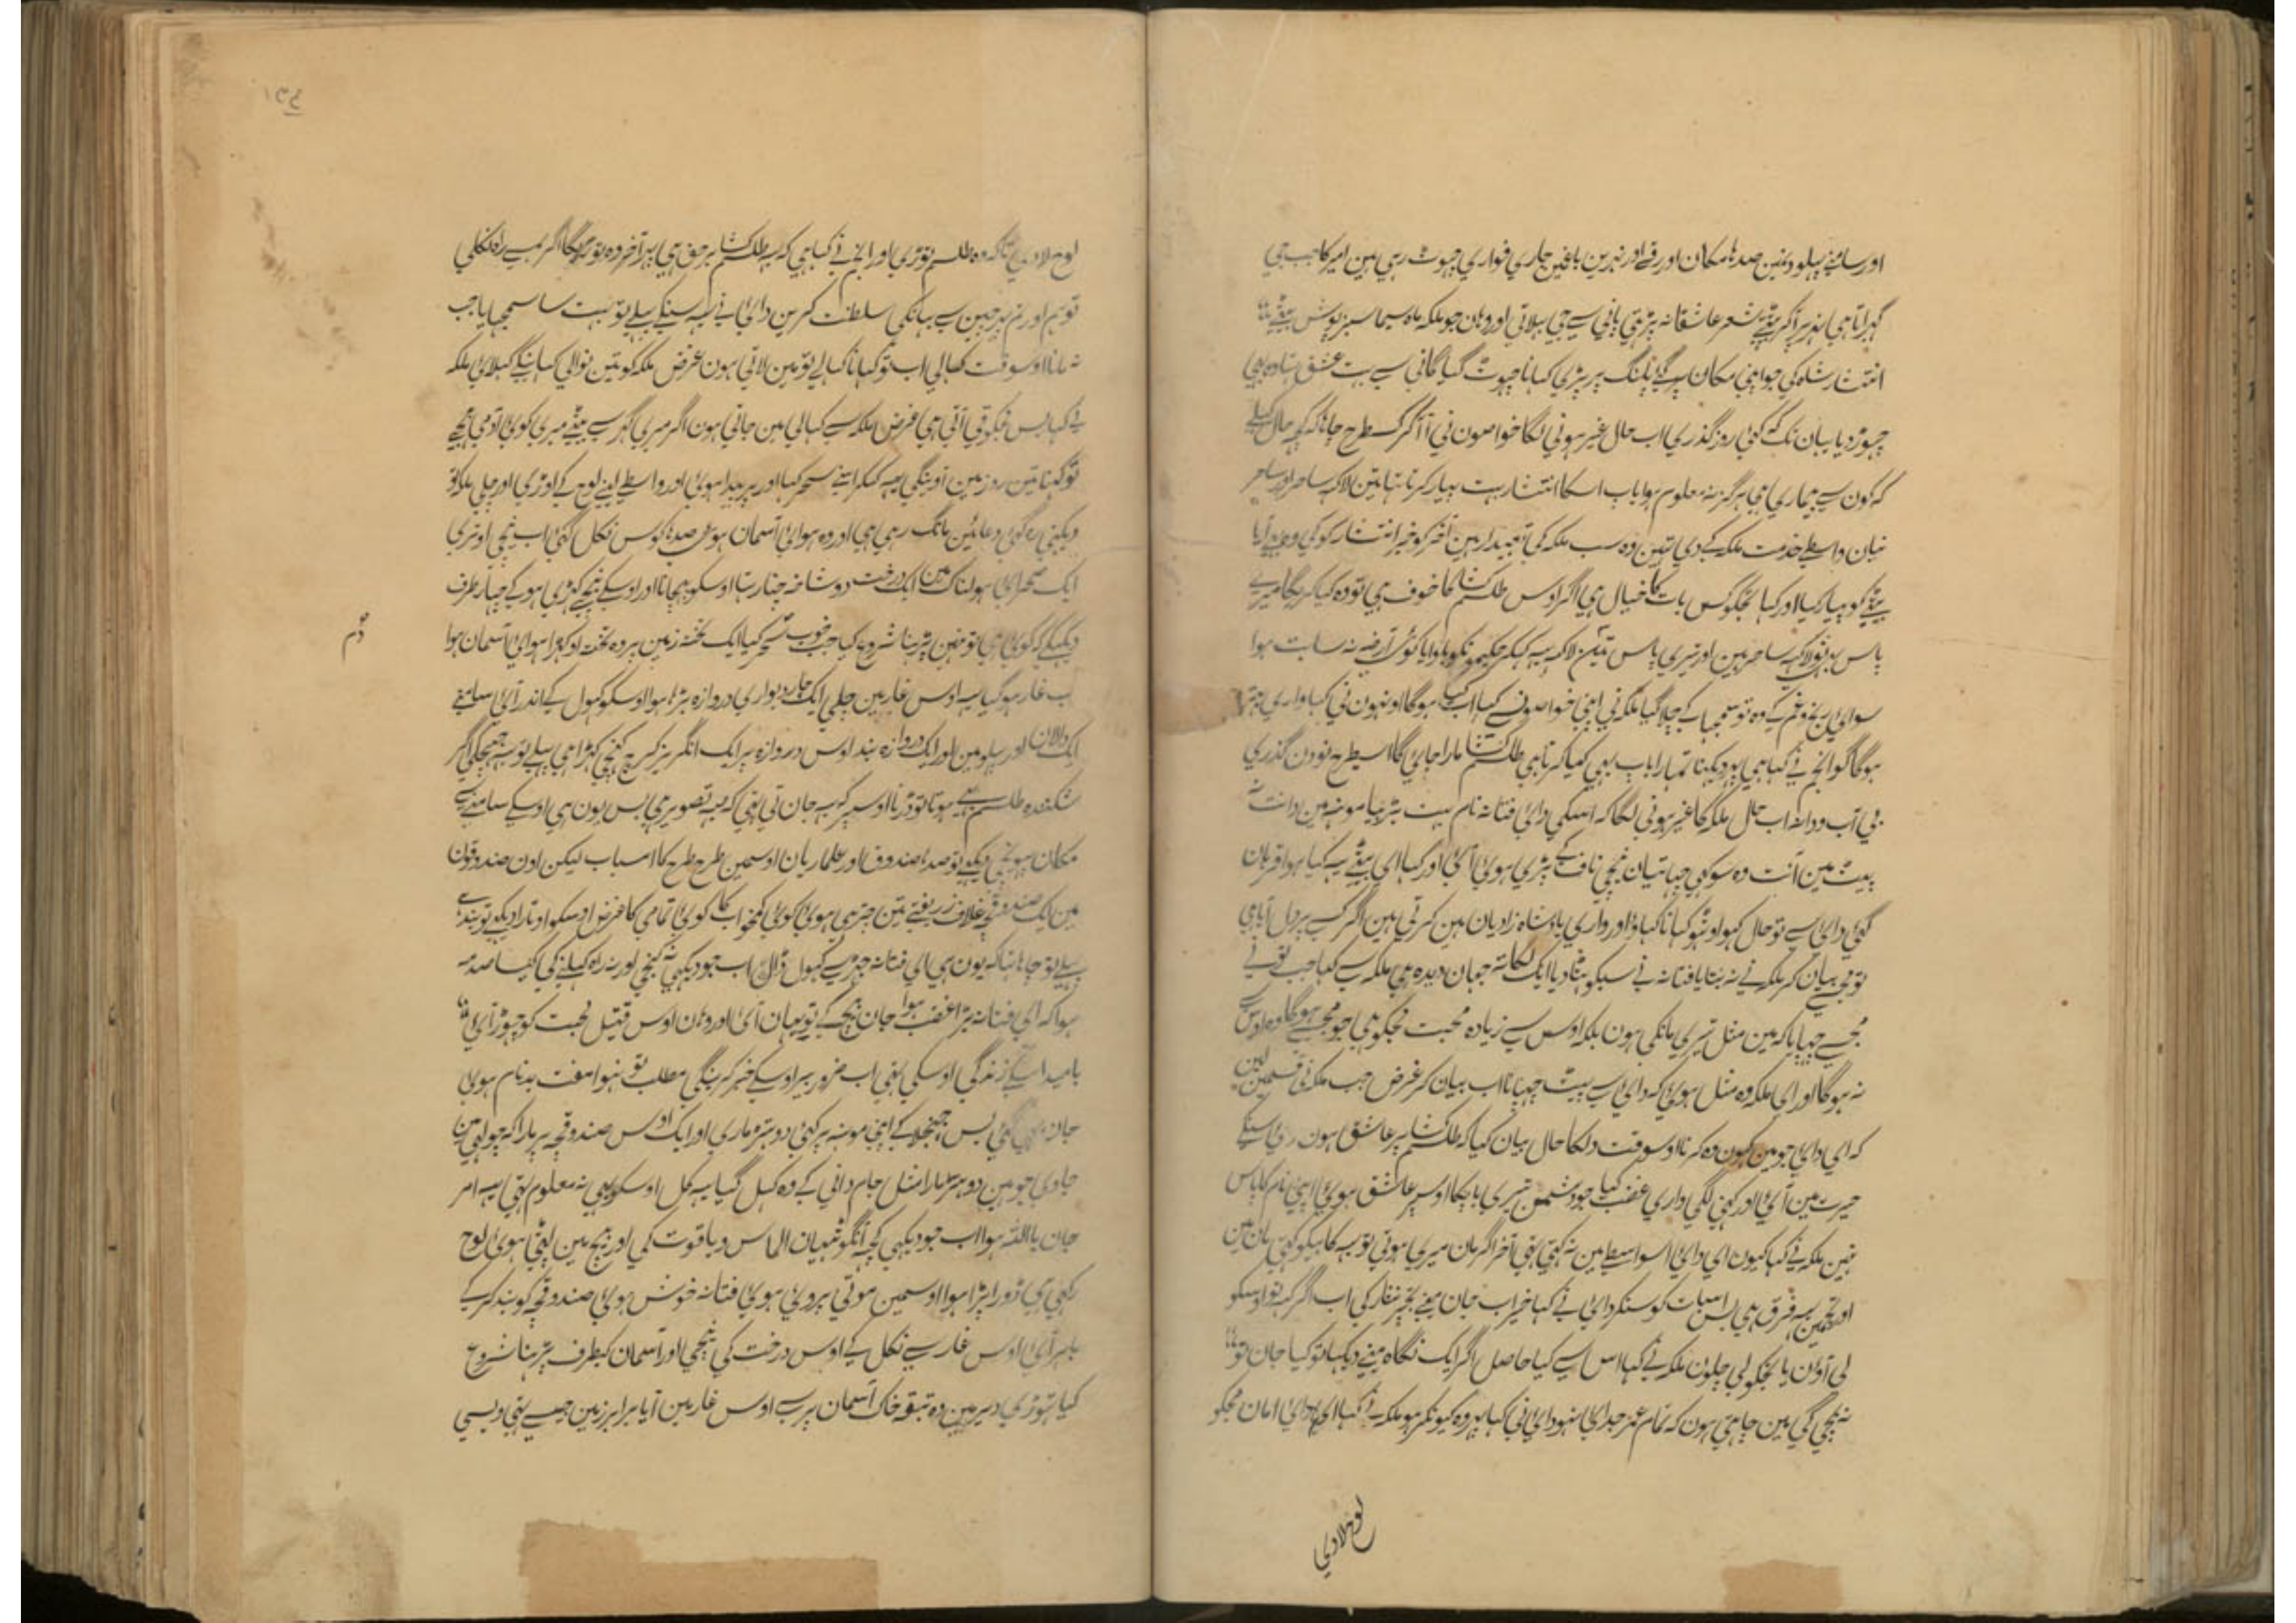 اور سامنے پہلو ونمین صدہا مکان اور قے اور نہرین باغمین جاری فواری چہوٹ رہی ہین امیر کا جب جی
گہراتا ہی نہر پر آکر بیٹہے شعر عاشقانہ پڑہتی پانی سے جی بہلاتی اور وہان جو ملکہ ماہ سیما سبز پوش بیٹے
انتشار شاہ کی جو اپنی مکان پر گئی پلنگ پر پڑی کہانا چہوٹ گیا گانی سے بیت عشق زیادہ ہی
چہوڑ دیا یہان تک کہ کئی روز گذری اب حال غیر ہونی لگا خواصون نی آ آکر کسطرح جانا کہ کچہ حال کہلے
کہ کون سے بیماری ہی ہرگز نہ معلوم ہوا باپ اسکا انتشار بہت پیار کرتا تہا تین لاکہ ساحر اور ساحر
نیان واسطے خدمت ملکہ کے دی تہین وہ سب ملکہ کی تابعدار ہین آخر کو خبر انتشار کو کی وہ دوڑ آیا
بیٹے کو پیار کیا اور کہا تجکو کس بات کا خیال ہی اگر اوس طلسم کشا کا خوف ہی تو وہ کیا کریگا میرے
پاس نو لاکہ ساحر ہین اور تیری پاس تین لاکہ یہ کہکر حکیمونکو بلوایا کوئی آرضہ نہ ثابت ہوا
سوائی رنج و غم کے وہ تو سمجہا کے چلا گیا ملکہ نی اپنی خواصونسے کہا اب کیا ہوگا اونہون نی کہا واری فتح
ہوگا گو انجم نے کہا ہی پر دیکہنا تمہارا باپ بہی کیا کرتا ہی طلسم کشا مارا جائی گا اسیطرح نو دن گذری
بی آب و دانہ اب حال ملکہ کا غیر ہونی لگا کہ اسکی دائی فتانہ نام بہت بڑہیا مونہہ مین دانت نہ
پیٹ مین آنت وہ سوکہی چہاتیان نیچی ناف کے پڑی ہوئی آئی اور کہا ای بیٹے یہ کیا ہوا قربان
گئی دائی سے تو حال کہو اوٹہو کہانا کہاؤ اور واری پادشاہ زادیان ہین کرتی ہین اگر کسے پر دل آیا ہی
تو مجسے بیان کر ملکہ نے نہ بتایا فتانہ نے سبکو ہٹا دیا ایک لکاتہ جہان دیدہ ہی ملکہ سے کہا جب تو نے
مجسے چہپایا کہ مین مثل تیری مانکی ہون بلکہ اوس سے زیادہ محبت مجکو ہی جو مجسے ہوگا وہ اوس
نہ ہوگا اور ای ملکہ وہ مثل ہوئی کہ دائی سے پیٹ چہپانا اب بیان کر غرض جب ملکہ نی قسمین لین
کہ ای دائی جو مین کہون وہ کرنا اوسوقت دلکا حال بیان کیا کہ طلسم کشا پر عاشق ہون دائی سنکے
حیرت مین آئی اور کہنی لگی واری غضب کیا جو دشمن تیری باپکا اوسپر عاشق ہوئی اپنی نام کا پاس
نہین ملکہ نے کہا کیون ای دائی اسواسطے مین نہ کہتی تہی آخر اگر مان میری ہوتی تو یہ کاہیکو کہتی مان مین
اور تجمین یہ فرق ہی بس اسبات کو سنکر دائی نے کہا خیراب جان مینے تجپر نثار کی اب اگر کہے تو اوسکو
لی آؤن یا تجکو لی چلون ملکہ نے کہا اس سے کیا حاصل اگر ایک نگاہ مینے دیکہا تو کیا جان تو
نہ بچی گی مین چاہتی ہون کہ تمام عمر جدائی نہو دائی نی کہا پہر وہ کیونکر ہو ملکہ نے کہا ای دائی امان مجکو
لوح لادی
۱۳۴
لوح لادی تاکہ وہ طلسم توڑی اور انجم نے کہا ہی کہ یہ طلسم کشا بر حق ہی پر آخر وہ توڑیگا اگر یہے راہ نکلی
تو ہم اور تم پر چین سے یہانکی سلطنت کرین دائی نے یہ سنکے پہلے تو بہت سا سمجہایا جب
نہ مانا اوسوقت کہا لی اب تو کہانا کہالے تو مین لاتی ہون غرض ملکہ کو تین نوالی کہانیکے کہلائی ملکہ
نے کہا بس مجکو قی آتی ہی غرض ملکہ سے کہا لی مین جاتی ہون اگر میری گہر سے بیٹے میری کوئی آدمی بہیجے
تو کہنا تین روز مین آوینگی یہ کہکر اسنے سحر کیا اور پر پیدا ہوئی اور واسطے لینے لوح کے اوڑی اور چلی ملکہ تو
دیکہتی رہ گئی دعائین مانگ رہی ہی اور وہ ہوائی آسمان ہوئی صدہا کوس نکل گئی اب نیچی اوتری
ایک صحرای ہولناک مین ایک درخت دو شاخہ چنار تہا اوسکو پہچانا اور اوسکے نیچے کہڑی ہو کے چہار طرف
دیکہنے لگی کوئی ہی تو نہین پڑہنا شروع کیا جب خوب سحر کیا ایک تختہ زمین پر وہ تختہ اوکہڑا ہوائی آسمان ہوا
دُم
اب غار ہو گیا یہ اوس غار مین چلی ایک چار دیواری دروازہ بڑا ہوا اوسکو کہول کے اندر آئی سامنے
ایک دالان اور پہلو مین اور ایک دروازہ بند اوس دروازہ پر ایک انگریز کرچ کہنچی کہڑا ہی پہلے تو یہ جہجکی اگر
شکنندہ طلسم سے ہوتا تو ڈرتا اوسپر کہ یہ جان تی تہی کہ یہ تصویر ہی بس یون ہی اوسکے سامنے سے
مکان پہونچی دیکہے تو صدہا صندوق اور علماریان اوسمین طرح طرح کا اسباب لیکن اون صندوقون
مین ایک صندوقچے غلاف زربفتے تین چڑہی ہوئی کوئی کمخواب کا کوئی تمامی کا غرض اوسکو اوتارا دیکہے تو بند ہے
پہلے تو چاہا تہا کہ یون ہی ای فتانہ جہٹ سے کہول ڈالی اب جو دیکہی نہ کنجی اور نہ راہ کہلنے کی کہا صدمہ
ہوا کہ ای فتانہ بڑا غضب ہوا جان بیچ کے تو یہان آئی اور وہان اوس قتیل محبت کو چہوڑ آئی
بامید اسکے زندگی اوسکی تہی اب ضرور پیر اوسکے خبر کرینگی مطلب تو نہوا مفت بدنام ہوئی
جان بہی گئی بس جہنجلا کے اپنی مونہہ پر کئی دوہتڑ ماری اور ایک اوس صندوقچہ پر مارا کہ چولہی مین
جاوی جو ہین دوہتڑ مارا مثل جام دانی کے وہ کہل گیا یہ کل اوسکو بہی نہ معلوم تہی یہ امر
جان یا اللہ ہوا اب جو دیکہی کچہ انگوٹہیان الماس و یاقوت کی اور بیچ مین لپٹی ہوئی لوح
رکہی ہی ڈورا پڑا ہوا اوسمین موتی پروئی ہوئی فتانہ خوش ہوئی صندوقچہ کو بند کر کے
باہر آئی اوس غار سے نکل کے اوس درخت کی نیچی اور آسمان کیطرف پڑہنا شروع
کیا تہوڑی دیر مین وہ تبقہ خاک آسمان پر سے اوس غار مین آیا برابر زمین جیسے تہی ویسی